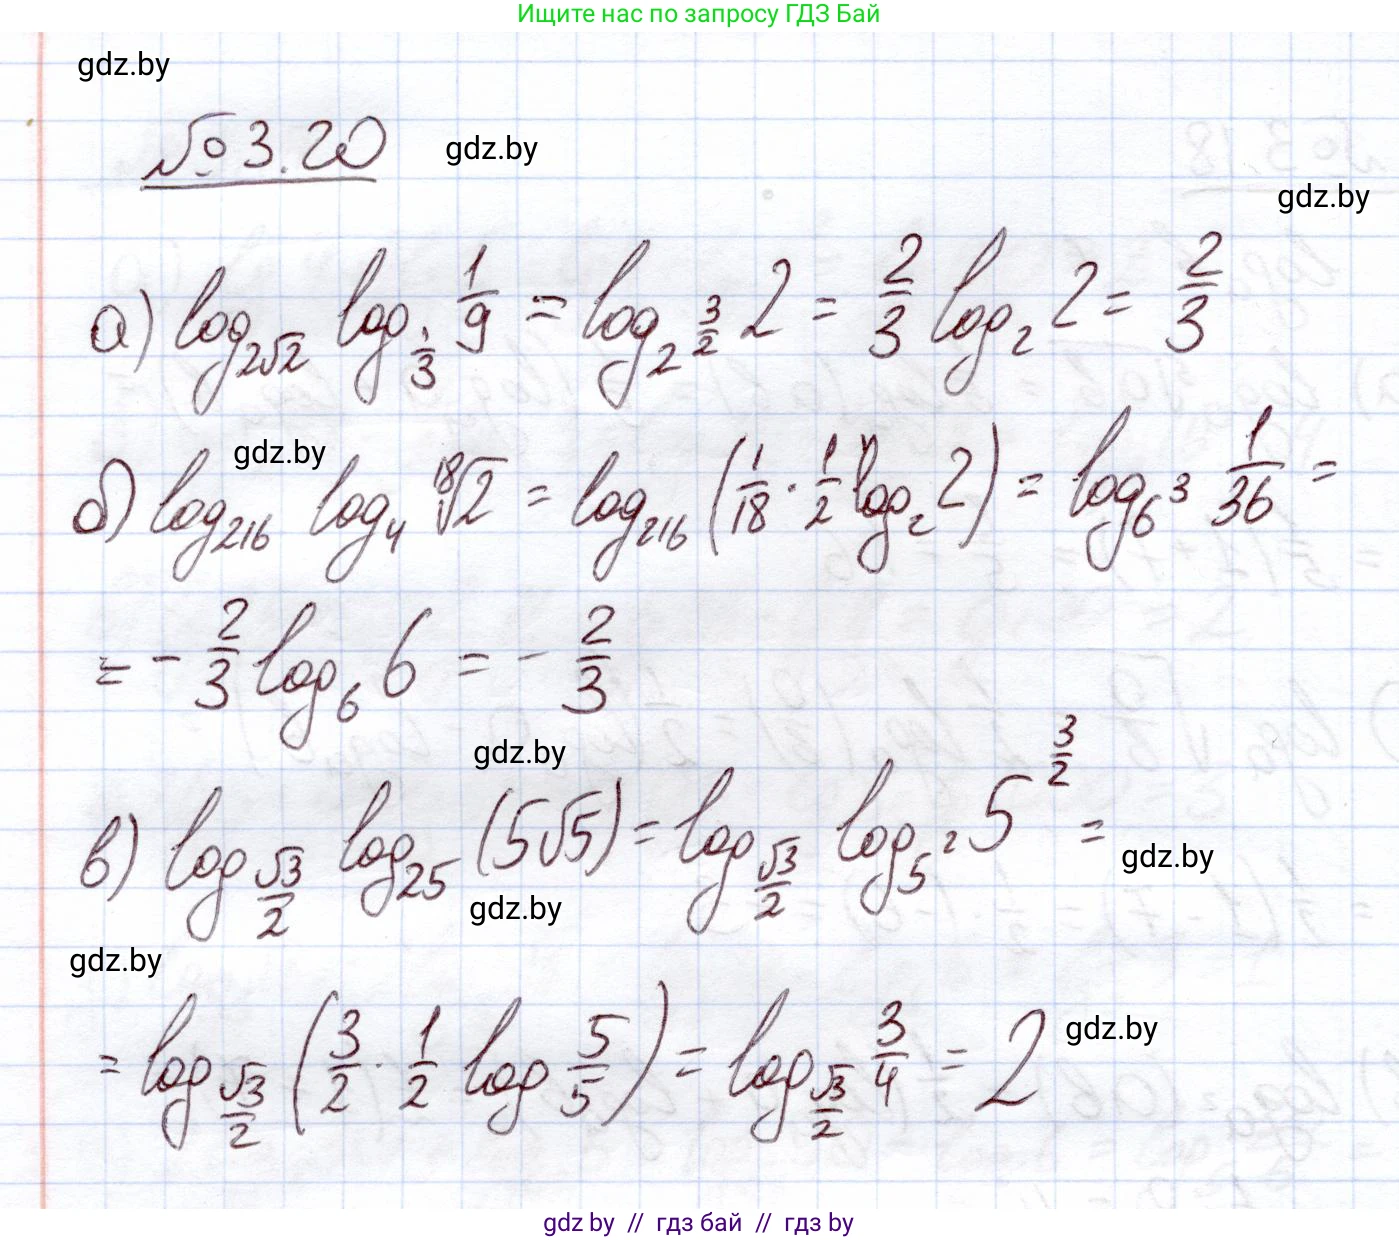 Ищите нас по запросу ГДЗ Бай
gdz.by
№ 3.20 gdz.by
gdz.by
а) log_{2√2} log_{1/3} 1/9 = log_{2^{3/2}} 2 = 2/3 log_2 2 = 2/3
gdz.by
б) log_{216} log_4 ¹⁸√2 = log_{216} (1/18 · 1/2 log_2 2) = log_{6^3} 1/36 =
= - 2/3 log_6 6 = - 2/3
gdz.by
в) log_{√3/2} log_{25} (5√5) = log_{√3/2} log_{5^2} 5^{3/2} =
gdz.by
gdz.by
gdz.by
= log_{√3/2} (3/2 · 1/2 log 5/5) = log_{√3/2} 3/4 = 2
gdz.by
gdz by // гдз бай // гдз by